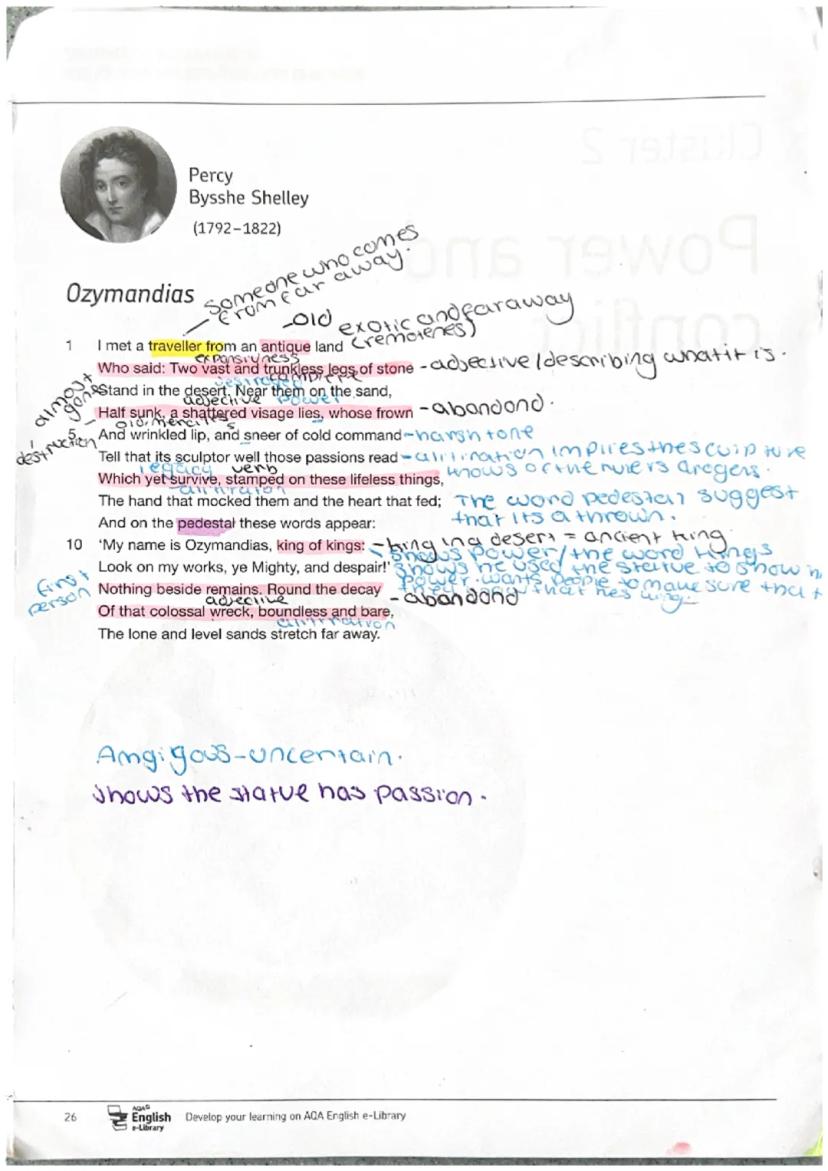 Percy
Bysshe Shelley
(1792–1822)
someone who comes
from far away.
Ozymandias
-old exotic and faraway
1 I met a traveller from an antique land
expansivness
Who said: Two vast and trunkless legs of stone -adjective/describing what it is.
almost
gone
Stand in the desert. Near them on the sand,
adjective power
Half sunk, a shattered visage lies, whose frown -abandond.
destruction
5 And wrinkled lip, and sneer of cold command -harsh tone
Tell that its sculptor well those passions read
legacy verb
Which yet survive, stamped on these lifeless things,
The hand that mocked them and the heart that fed; The word pedestal suggest
that its a thrown.
And on the pedestal these words appear:
10 'My name is Ozymandias, king of kings: -king ing desert = ancient king
shows power/the word kings
Look on my works, ye Mighty, and despair!' shows he used the statue to show
power. wants people to make sure that
first
person
Nothing beside remains. Round the decay -abandond
adjective
Of that colossal wreck, boundless and bare,
The lone and level sands stretch far away.
Angigous-uncertain.
shows the statue has passion.
26 AQA English e-Library Develop your learning on AQA English e-Library